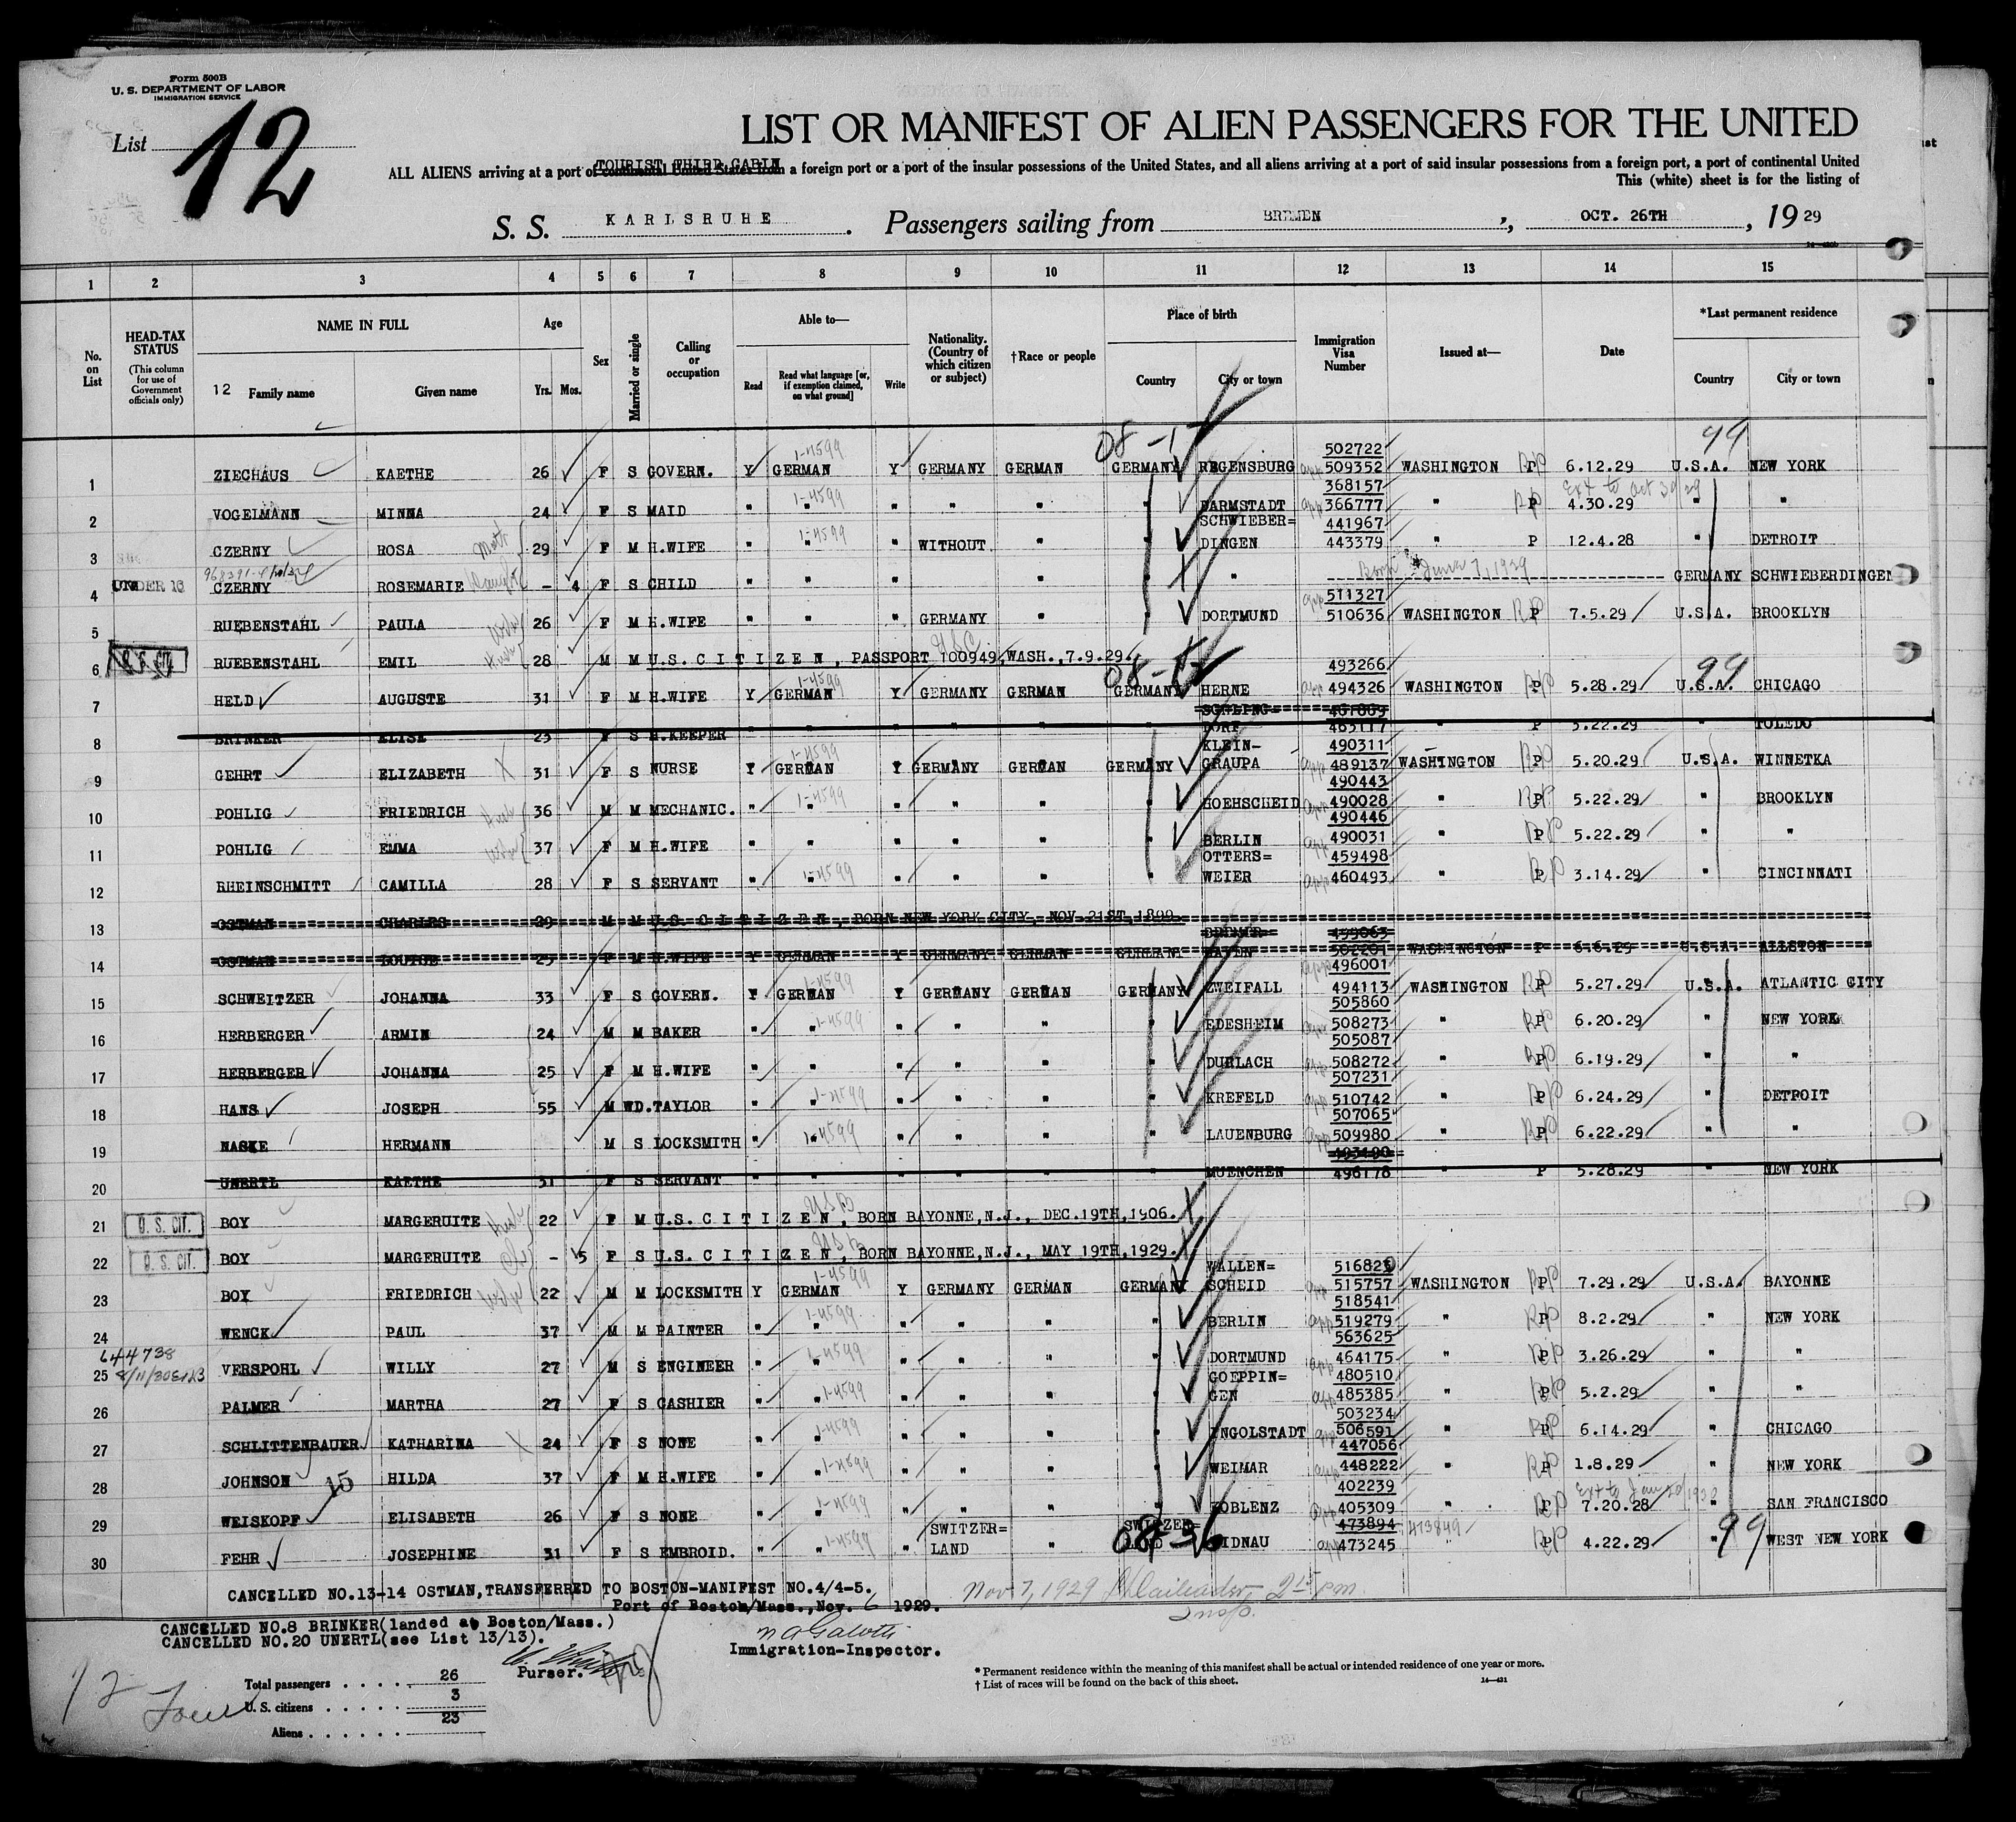 Form 500B
U. S. DEPARTMENT OF LABOR
IMMIGRATION SERVICE
List 12
LIST OR MANIFEST OF ALIEN PASSENGERS FOR THE UNITED
TOURIST THIRD CABIN
ALL ALIENS arriving at a port of continental United States from a foreign port or a port of the insular possessions of the United States, and all aliens arriving at a port of said insular possessions from a foreign port, a port of continental United
This (white) sheet is for the listing of
S. S. KARLSRUHE. Passengers sailing from BREMEN, OCT. 26TH, 1929
1 2 3 4 5 6 7 8 9 10 11 12 13 14 15
No. on List
HEAD-TAX STATUS (This column for use of Government officials only)
NAME IN FULL
12 Family name Given name
Age Yrs. Mos.
Sex
Married or single
Calling or occupation
Able to—
Read Read what language [or, if exemption claimed, on what ground] Write
Nationality. (Country of which citizen or subject)
†Race or people
Place of birth
Country City or town
Immigration Visa Number
Issued at—
Date
*Last permanent residence
Country City or town
08-1 99
1-4599 502722
1 ZIECHAUS KAETHE 26 F S GOVERN. Y GERMAN Y GERMANY GERMAN GERMANY REGENSBURG 509352 WASHINGTON P 6.12.29 U.S.A. NEW YORK
1-4599 368157 Ext to Oct 30/29
2 VOGELMANN MINNA 24 F S MAID " " " " " " DARMSTADT 366777 " P 4.30.29 " "
1-4599 SCHWIEBER= 441967
3 CZERNY ROSA 29 F M H.WIFE " " " WITHOUT " " DINGEN 443379 " P 12.4.28 " DETROIT
4 UNDER 16 CZERNY ROSEMARIE - 4 F S CHILD " " " " " " " Born June 7, 1929 GERMANY SCHWIEBERDINGEN
511327
5 RUEBENSTAHL PAULA 26 F M H.WIFE " " " GERMANY " " DORTMUND 510636 WASHINGTON P 7.5.29 U.S.A. BROOKLYN
6 RUEBENSTAHL EMIL 28 M M U.S. CITIZEN, PASSPORT 100949, WASH., 7.9.29.
1-4599 493266 99
7 HELD AUGUSTE 31 F M H.WIFE Y GERMAN Y GERMANY GERMAN GERMANY HERNE 494326 WASHINGTON P 5.28.29 U.S.A. CHICAGO
8 BRINKER ELISE F S H.KEEPER " " " " " " DORF P 5.22.29 " TOLEDO
1-4599 KLEIN- 490311
9 GEHRT ELIZABETH 31 F S NURSE Y GERMAN Y GERMANY GERMAN GERMANY GRAUPA 489137 WASHINGTON P 5.20.29 U.S.A. WINNETKA
1-4599 490443
10 POHLIG FRIEDRICH 36 M M MECHANIC. " " " " " " HOEHSCHEID 490028 " P 5.22.29 " BROOKLYN
490446
11 POHLIG EMMA 37 F M H.WIFE " " " " " " BERLIN 490031 " P 5.22.29 " "
1-4599 OTTERS= 459498
12 RHEINSCHMITT CAMILLA 28 F S SERVANT " " " " " " WEIER 460493 " P 3.14.29 " CINCINNATI
13 OSTMAN CHARLES 29 M M U.S. CITIZEN, BORN NEW YORK CITY, NOV. 21ST, 1899
14 OSTMAN LOUISE F M H.WIFE Y GERMAN Y GERMANY GERMAN GERMANY HAVEN 502201 WASHINGTON P 6.6.29 U.S.A. ALLSTON
1-4599 496001
15 SCHWEITZER JOHANNA 33 F S GOVERN. Y GERMAN Y GERMANY GERMAN GERMANY ZWEIFALL 494113 WASHINGTON P 5.27.29 U.S.A. ATLANTIC CITY
1-4599 505860
16 HERBERGER ARMIN 24 M M BAKER " " " " " " EDESHEIM 508273 " P 6.20.29 " NEW YORK
505087
17 HERBERGER JOHANNA 25 F M H.WIFE " " " " " " DURLACH 508272 " P 6.19.29 " "
1-4599 507231
18 HANS JOSEPH 55 M WD. TAYLOR " " " " " " KREFELD 510742 " P 6.24.29 " DETROIT
1-4599 507065
19 NASKE HERMANN M S LOCKSMITH " " " " " " LAUENBURG 509980 " P 6.22.29 " "
20 UNERTL KAETHE 31 F S SERVANT " " " " " " MUENCHEN 496178 " P 5.28.29 " NEW YORK
21 U. S. CIT. BOY MARGERUITE 22 F M U.S. CITIZEN, BORN BAYONNE, N.J., DEC. 19TH, 1906.
22 U. S. CIT. BOY MARGERUITE - 5 F S U.S. CITIZEN, BORN BAYONNE, N.J., MAY 19TH, 1929.
1-4599 WALLEN=
23 BOY FRIEDRICH 22 M M LOCKSMITH Y GERMAN Y GERMANY GERMAN GERMANY SCHEID 515757 WASHINGTON P 7.29.29 U.S.A. BAYONNE
1-4599 518541
24 WENCK PAUL 37 M M PAINTER " " " " " " BERLIN 519279 " P 8.2.29 " NEW YORK
644738 1-4599 563625
25 VERSPOHL WILLY 27 M S ENGINEER " " " " " " DORTMUND 464175 " P 3.26.29 " "
1-4599 GOEPPIN= 480510
26 PALMER MARTHA 27 F S CASHIER " " " " " " GEN 485385 " P 5.2.29 " "
1-4599 503234
27 SCHLITTENBAUER KATHARINA 24 F S NONE " " " " " " INGOLSTADT 506591 " P 6.14.29 " CHICAGO
1-4599 447056
28 JOHNSON 15 HILDA 37 F M H.WIFE " " " " " " WEIMAR 448222 " P 1.8.29 " NEW YORK
1-4599 402239 Ext to Jan 20/1930
29 WEISKOPF ELISABETH 26 F S NONE " " " " " " KOBLENZ 405309 " P 7.20.28 " SAN FRANCISCO
1-4599 SWITZER= SWITZER= 473894 473849 99
30 FEHR JOSEPHINE 31 F S EMBROID. " " " LAND " LAND WIDNAU 473245 " P 4.22.29 " WEST NEW YORK
08-36
CANCELLED NO.13-14 OSTMAN, TRANSFERRED TO BOSTON-MANIFEST NO.4/4-5.
Nov 7, 1929 2 15 pm. Insp.
Port of Boston/Mass., Nov. 6 1929.
CANCELLED NO.8 BRINKER(landed at Boston/Mass.)
CANCELLED NO.20 UNERTL(see List 13/13).
Immigration-Inspector.
Purser.
Total passengers 26
U. S. citizens 3
Aliens 23
12 Four
* Permanent residence within the meaning of this manifest shall be actual or intended residence of one year or more.
† List of races will be found on the back of this sheet.
14—431